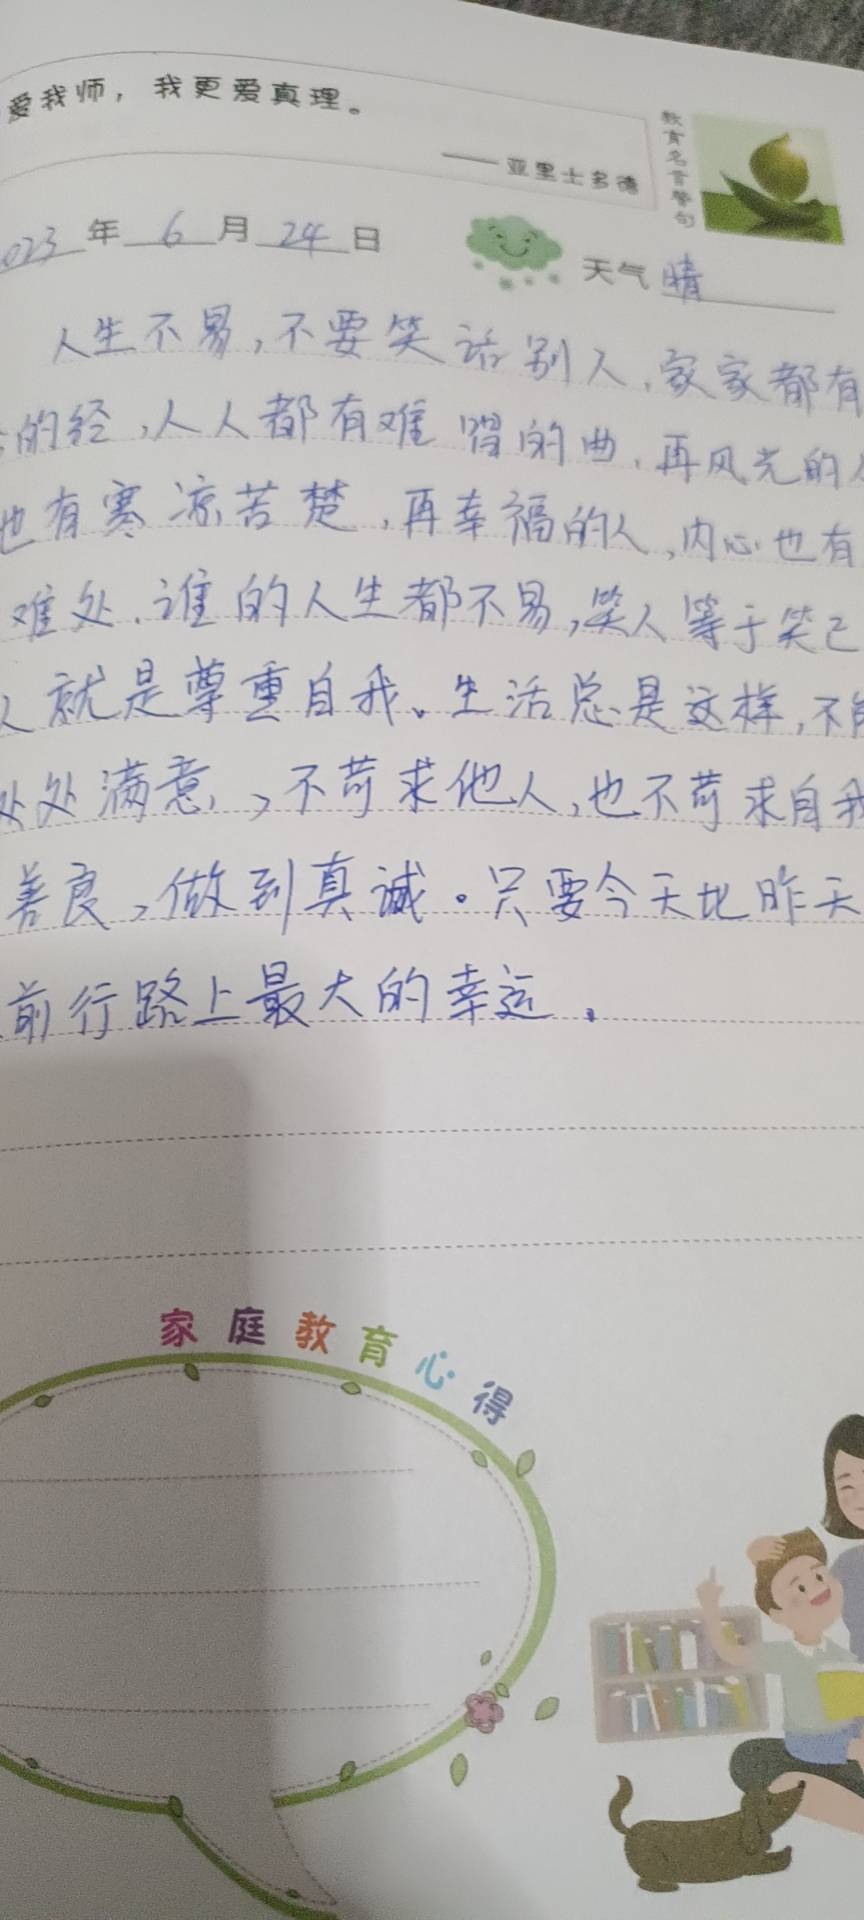 爱我师，我更爱真理。
——亚里士多德
教育名言警句
023年6月24日
天气 晴
人生不易，不要笑话别人，家家都有
的经，人人都有难唱的曲，再风光的人
也有寒凉苦楚，再幸福的人，内心也有
难处，谁的人生都不易，笑人等于笑己
人就是尊重自我。生活总是这样，不能
处处满意，，不苛求他人，也不苛求自我
善良，做到真诚。只要今天比昨天
前行路上最大的幸运。
家庭教育心得